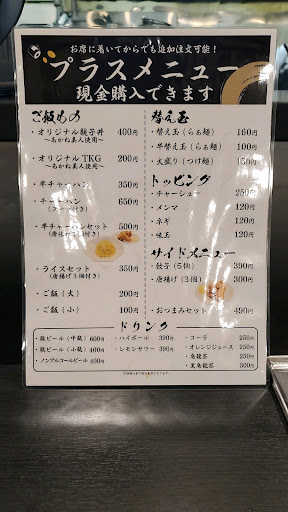 お席に着いてからでも追加注文可能！
プラスメニュー
現金購入できます
ご飯もの
・オリジナル親子丼 400円
～あかね美人使用～
・オリジナルTKG 200円
～あかね美人使用～
・半チャーハン 350円
・チャーハン 650円
(スープ付き)
・半チャーハンセット 500円
(唐揚げ3個付き)
・ライスセット 350円
(唐揚げ3個付き)
・ご飯(大) 200円
・ご飯(小) 100円
替え玉
・替え玉(らぁ麺) 160円
・半替え玉(らぁ麺) 100円
・大盛り(つけ麺) 150円
トッピング
・チャーシュー 250円
・メンマ 120円
・ネギ 120円
・味玉 120円
サイドメニュー
・餃子(5個) 390円
・唐揚げ(3個) 300円
・おつまみセット 490円
ドリンク
・瓶ビール(中瓶) 600円
・瓶ビール(小瓶) 400円
・ノンアルコールビール 400円
・ハイボール 390円
・レモンサワー 390円
・コーラ 250円
・オレンジジュース 250円
・烏龍茶 250円
・黒烏龍茶 300円